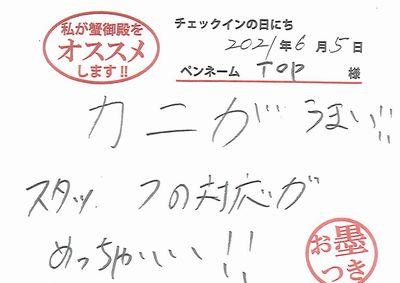 私が蟹御殿を
オススメ
します!!
チェックインの日にち
2021年6月5日
ペンネーム TOP 様
カニがうまい!!
スタッフの対応が
めっちゃいい!!
お墨
つき